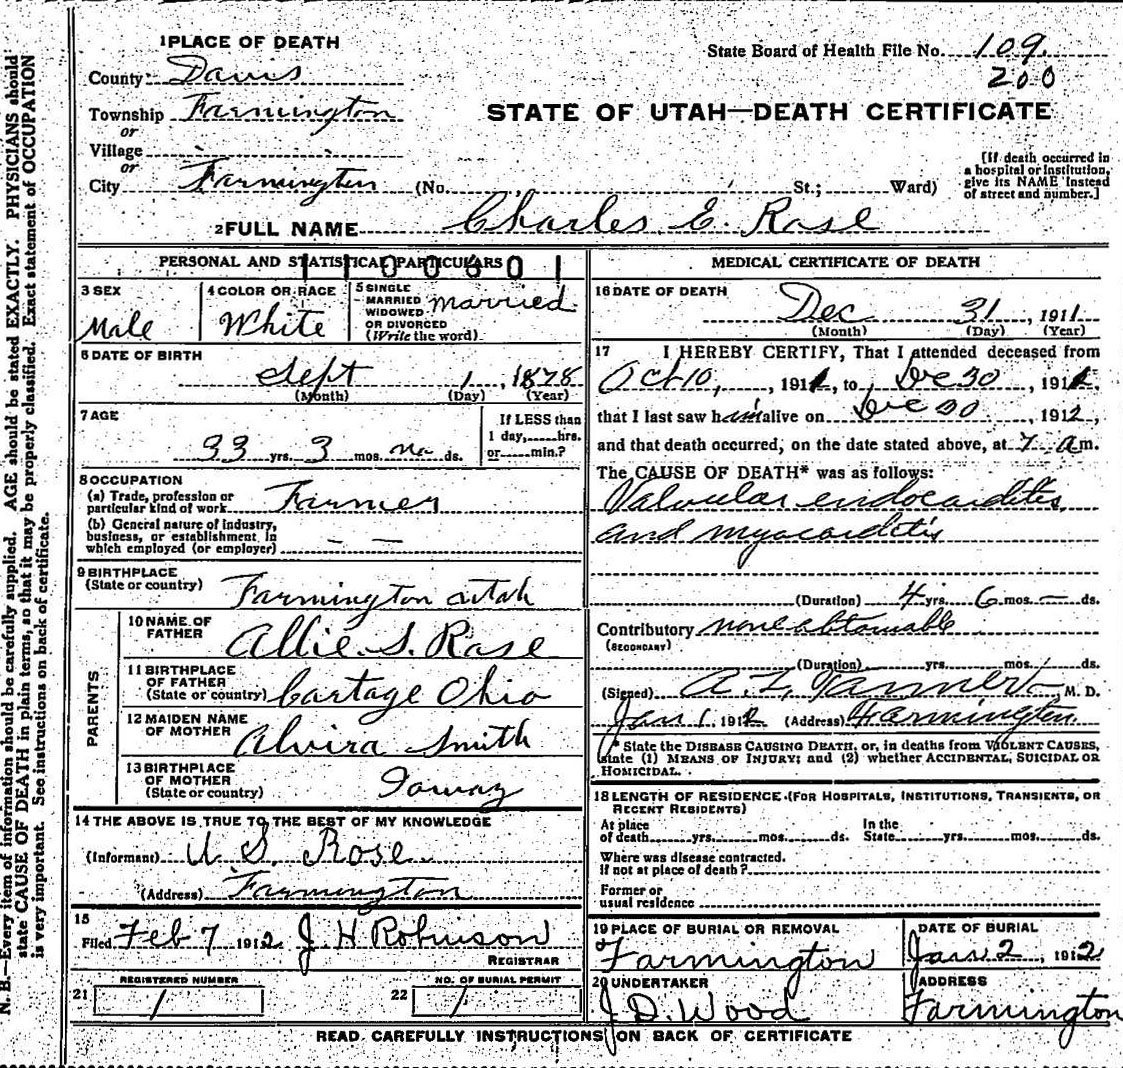 1 PLACE OF DEATH
County: Davis
Township Farmington
or
Village
or
City Farmington (No. St.; Ward)
State Board of Health File No. 109.
200
STATE OF UTAH—DEATH CERTIFICATE
[If death occurred in
a hospital or institution,
give its NAME instead
of street and number.]
2 FULL NAME Charles E. Rose
PERSONAL AND STATISTICAL PARTICULARS
1100601
3 SEX
Male
4 COLOR OR RACE
White
5 SINGLE
MARRIED
WIDOWED
OR DIVORCED
(Write the word)
married
6 DATE OF BIRTH
Sept 1, 1878
(Month) (Day) (Year)
7 AGE
33 yrs. 3 mos. no ds.
If LESS than
1 day, hrs.
or min.?
8 OCCUPATION
(a) Trade, profession or
particular kind of work Farmer
(b) General nature of industry,
business, or establishment in
which employed (or employer) — —
9 BIRTHPLACE
(State or country) Farmington Utah
PARENTS
10 NAME OF
FATHER Allie S. Rose
11 BIRTHPLACE
OF FATHER
(State or country) Cartage Ohio
12 MAIDEN NAME
OF MOTHER Alvira Smith
13 BIRTHPLACE
OF MOTHER
(State or country) Ioway
14 THE ABOVE IS TRUE TO THE BEST OF MY KNOWLEDGE
(Informant) U. S. Rose
(Address) Farmington
15
Filed Feb 7 1912 J H Robinson
REGISTRAR
REGISTERED NUMBER
21 1
NO. OF BURIAL PERMIT
22 1
MEDICAL CERTIFICATE OF DEATH
16 DATE OF DEATH
Dec 31, 1911
(Month) (Day) (Year)
17 I HEREBY CERTIFY, That I attended deceased from
Oct 10, 191 , to Dec 30, 191 ,
that I last saw him alive on Dec 30, 1912,
and that death occurred, on the date stated above, at 7 a m.
The CAUSE OF DEATH* was as follows:
Valvular endocarditis
and myocarditis
(Duration) 4 yrs. 6 mos. — ds.
Contributory none obtainable
(SECONDARY)
(Duration) yrs. mos. ds.
(Signed) A. Z. Tanner M. D.
Jan 1. 1912 (Address) Farmington
* State the DISEASE CAUSING DEATH, or, in deaths from VIOLENT CAUSES,
state (1) MEANS OF INJURY; and (2) whether ACCIDENTAL, SUICIDAL OR
HOMICIDAL.
18 LENGTH OF RESIDENCE (FOR HOSPITALS, INSTITUTIONS, TRANSIENTS, OR
RECENT RESIDENTS)
At place
of death yrs. mos. ds.
In the
State yrs. mos. ds.
Where was disease contracted.
If not at place of death?
Former or
usual residence
19 PLACE OF BURIAL OR REMOVAL
Farmington
DATE OF BURIAL
Jan 2, 1912
20 UNDERTAKER
J. D. Wood
ADDRESS
Farmington
READ CAREFULLY INSTRUCTIONS ON BACK OF CERTIFICATE
N. B.—Every item of information should be carefully supplied. AGE should be stated EXACTLY. PHYSICIANS should
state CAUSE OF DEATH in plain terms, so that it may be properly classified. Exact statement of OCCUPATION
is very important. See instructions on back of certificate.